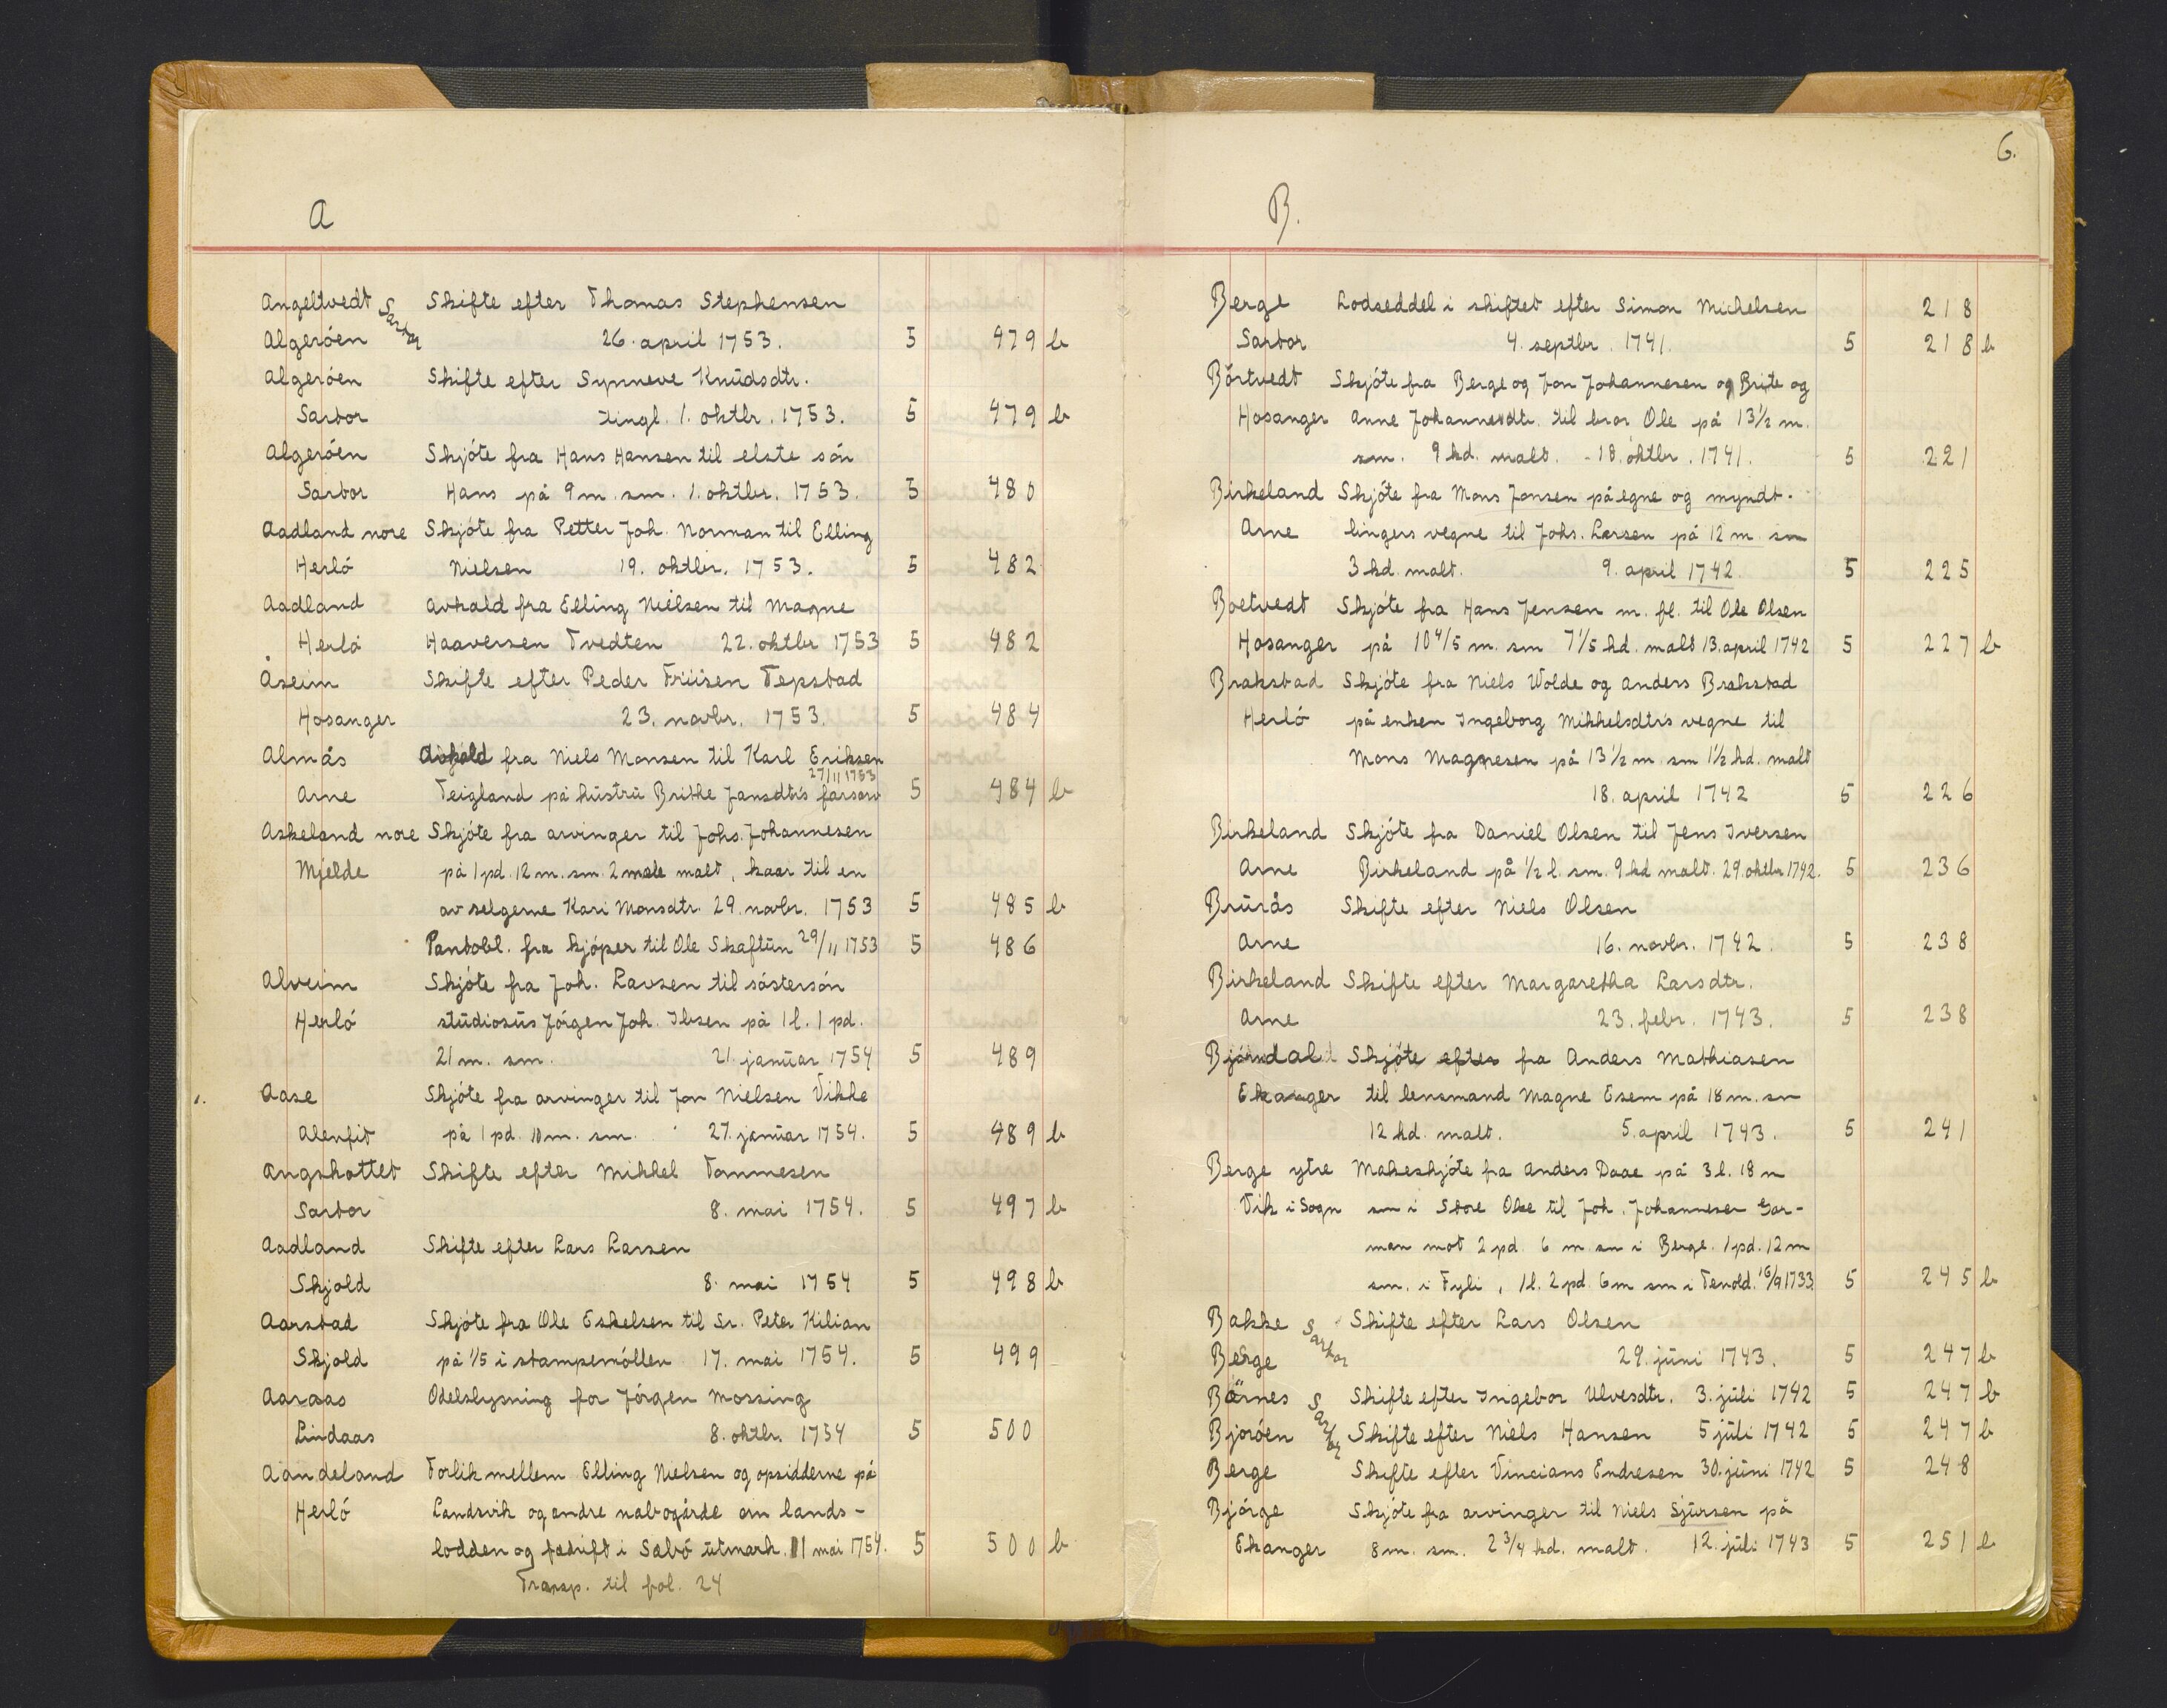 A
Angeltvedt Sartor Skifte efter Thomas Stephensen
Algeröen 26. april 1753. 5 479 b
Algeröen Skifte efter Synneve Knudsdtr.
Sartor tingl. 1. oktbr. 1753. 5 479 b
Algeröen Skjöte fra Hans Hansen til elste sön
Sartor Hans på 9 m. sm. 1. oktbr. 1753. 5 480
Aadland nore Skjöte fra Petter Joh. Norman til Elling
Herlö Nielsen 19. oktbr. 1753. 5 482
Aadland Avkald fra Elling Nielsen til Magne
Herlö Haaversen Tvedten 22. oktbr 1753 5 482
Åseim Skifte efter Peder Friisen Tepstad
Hosanger 23. novbr. 1753. 5 484
Almås Avkald fra Niels Monsen til Karl Eriksen
27/11 1753
Arne Teigland på hustru Brithe Jansdtrs farsarv 5 484 b
Askeland nore Skjöte fra arvinger til Johs. Johannesen
Mjelde på 1 pd. 12 m. sm. 2 mele malt, kaar til en
av selgerne Kari Monsdtr. 29. novbr. 1753 5 485 b
Pantobl. fra kjöper til Ole Skaftun 29/11 1753 5 486
Alveim Skjöte fra Joh. Lavsen til söstersön
Herlö studiosus Jörgen Joh. Ibsen på 1 l. 1 pd.
21 m. sm. 21. januar 1754 5 489
1. Aase Skjöte fra arvinger til Jon Nielsen Vikke
Alenfit på 1 pd. 10 m. sm. 27. januar 1754. 5 489 b
Angskottet Skifte efter Mikkel Tommesen
Sartor 8. mai 1754. 5 497 b
Aadland Skifte efter Lars Larsen
Skjold 8. mai 1754 5 498 b
Aarstad Skjöte fra Ole Eskelsen til Sr. Peter Kilian
Skjold på 1/5 i stampemöllen 17. mai 1754. 5 499
Aaraas Odelslysning for Jörgen Mossing
Lindaas 8. oktbr. 1754 5 500
Aandeland Forlik mellem Elling Nielsen og opsidderne på
Herlö Landsvik og andre nabogårde om lands-
lodden og fædrift i Sæbö utmark. 11 mai 1754. 5 500 b
Transp. til fol. 24
6.
B.
Berge Lodseddel i skiftet efter Simon Michelsen 218
Sartor 4. septbr. 1741. 5 218 b
Börtvedt Skjöte fra Berge og Jon Johannesen og Brite og
Hosanger Anne Johannesdtr. til bror Ole på 13 1/2 m.
sm. 9 kd. malt. - 18. oktbr. 1741. 5 221
Birkeland Skjöte fra Mons Jonsen på egne og myndt-
Arne lingers vegne til Johs. Larsen på 12 m. sm
3 kd. malt. 9. april 1742. 5 225
Boetvedt Skjöte fra Hans Jensen m. fl. til Ole Olsen
Hosanger på 10 4/5 m. sm 7 1/5 kd. malt 13. april 1742 5 227 b
Brakstad Skjöte fra Niels Wolde og Anders Brakstad
Herlö på enken Ingeborg Mikkelsdtrs vegne til
Mons Magnesen på 13 1/2 m. sm 1 1/2 kd. malt
18. april 1742 5 226
Birkeland Skjöte fra Daniel Olsen til Jens Iversen
Arne Birkeland på 1/2 l. sm. 9 kd malt. 29. oktbr 1742. 5 236
Brurås Skifte efter Niels Olsen
Arne 16. novbr. 1742. 5 238
Birkeland Skifte efter Margaretha Larsdtr.
Arne 23. febr. 1743. 5 238
Björndal Skjöte efter fra Anders Mathiasen
Ekanger til lensmand Magne Esem på 18 m. sm
12 kd. malt. 5. april 1743. 5 241
Berge ytre Makeskjöte fra Anders Daae på 3 l. 18 m
Vik i Sogn sm i Store Olse til Joh. Johannesen Gar-
man mot 2 pd. 6 m. sm i Berge. 1 pd. 12 m
sm. i Fyli, 1 l. 2 pd. 6 m sm i Tenold. 16/9 1733 5 245 b
Bakke Sartor Skifte efter Lars Olsen
Berge 29. juni 1743. 5 247 b
Bärnes Sartor Skifte efter Ingebor Ulvesdtr. 3. juli 1742 5 247 b
Bjoröen Skifte efter Niels Hansen 5 juli 1742 5 247 b
Berge Skifte efter Vincians Endresen 30. juni 1742 5 248
Bjørge Skjöte fra arvinger til Niels Sjursen på
Ekanger 8 m. sm. 2 3/4 kd. malt. 12. juli 1743 5 251 b